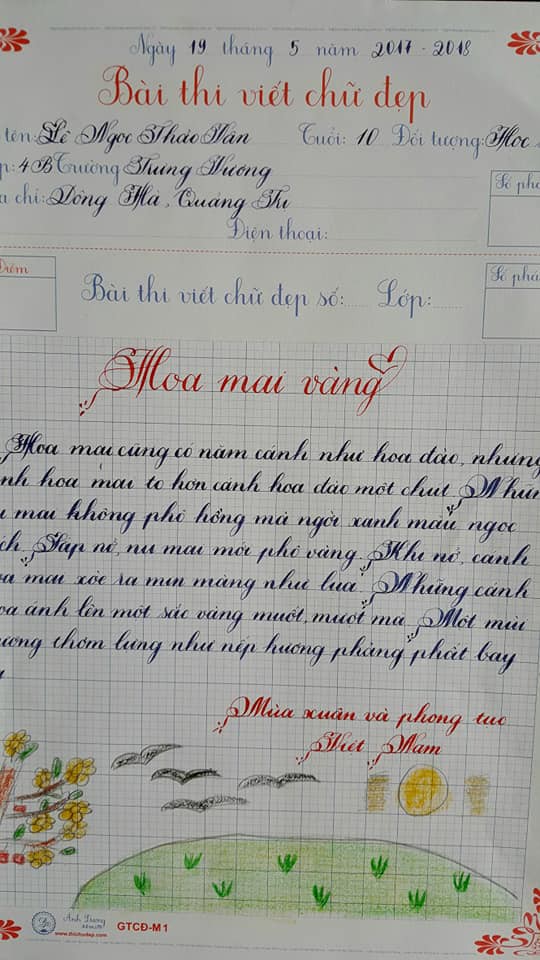 Ngày 19 tháng 5 năm 2017 - 2018
Bài thi viết chữ đẹp
tên: Lê Ngọc Thảo Vân Tuổi: 10 Đối tượng: Học
p: 4B Trường Trưng Vương
a chỉ: Đông Hà, Quảng Trị
Điện thoại:
Số phá
Điểm
Bài thi viết chữ đẹp số: Lớp:
Số phá
Hoa mai vàng
Hoa mai cũng có năm cánh như hoa đào, nhưng
nh hoa mai to hơn cánh hoa đào một chút. Nhữn
ụ mai không phô hồng mà ngời xanh màu ngọc
ch. Sắp nở, nụ mai mới phô vàng. Khi nở, cánh
oa mai xòe ra mịn màng như lụa. Những cánh
oa ánh lên một sắc vàng muốt, mượt mà. Một mùi
ương thơm lựng như nếp hương phảng phất bay
Mùa xuân và phong tục
Việt Nam
Ánh Dương
GTCĐ-M1